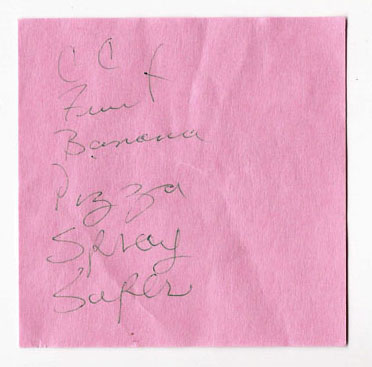 C C
Fruit
Banana
Pizza
Spray